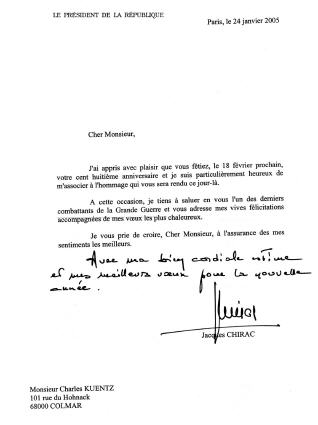 LE PRÉSIDENT DE LA RÉPUBLIQUE
Paris, le 24 janvier 2005
Cher Monsieur,
J'ai appris avec plaisir que vous fêtiez, le 18 février prochain,
votre cent huitième anniversaire et je suis particulièrement heureux de
m'associer à l'hommage qui vous sera rendu ce jour-là.
A cette occasion, je tiens à saluer en vous l'un des derniers
combattants de la Grande Guerre et vous adresse mes vives félicitations
accompagnées de mes vœux les plus chaleureux.
Je vous prie de croire, Cher Monsieur, à l'assurance des mes
sentiments les meilleurs.
Avec ma bien cordiale estime
et mes meilleurs vœux pour la nouvelle
année.
Jacques CHIRAC
Monsieur Charles KUENTZ
101 rue du Hohnack
68000 COLMAR